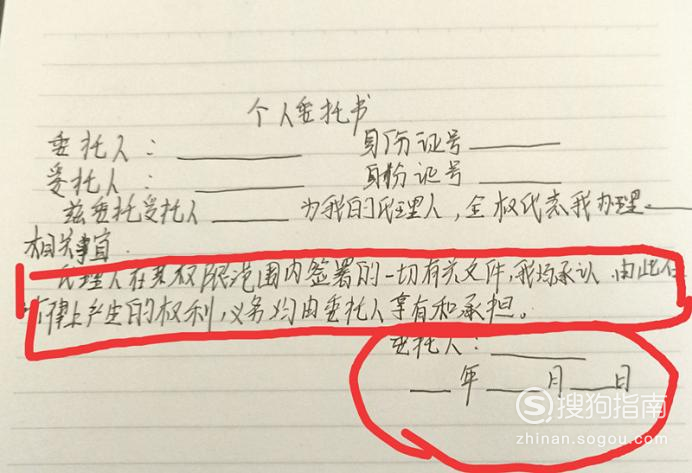 个人委托书
委托人：______ 身份证号______
受委托人：______ 身份证号______
兹委托受托人______为我的代理人，全权代表我办理______
相关事宜．
代理人在其权限范围内签署的一切有关文件，我均承认，由此在
法律上产生的权利，义务均由委托人享有和承担。
委托人：______
___年___月___日
搜狗指南
zhinan.sogou.com